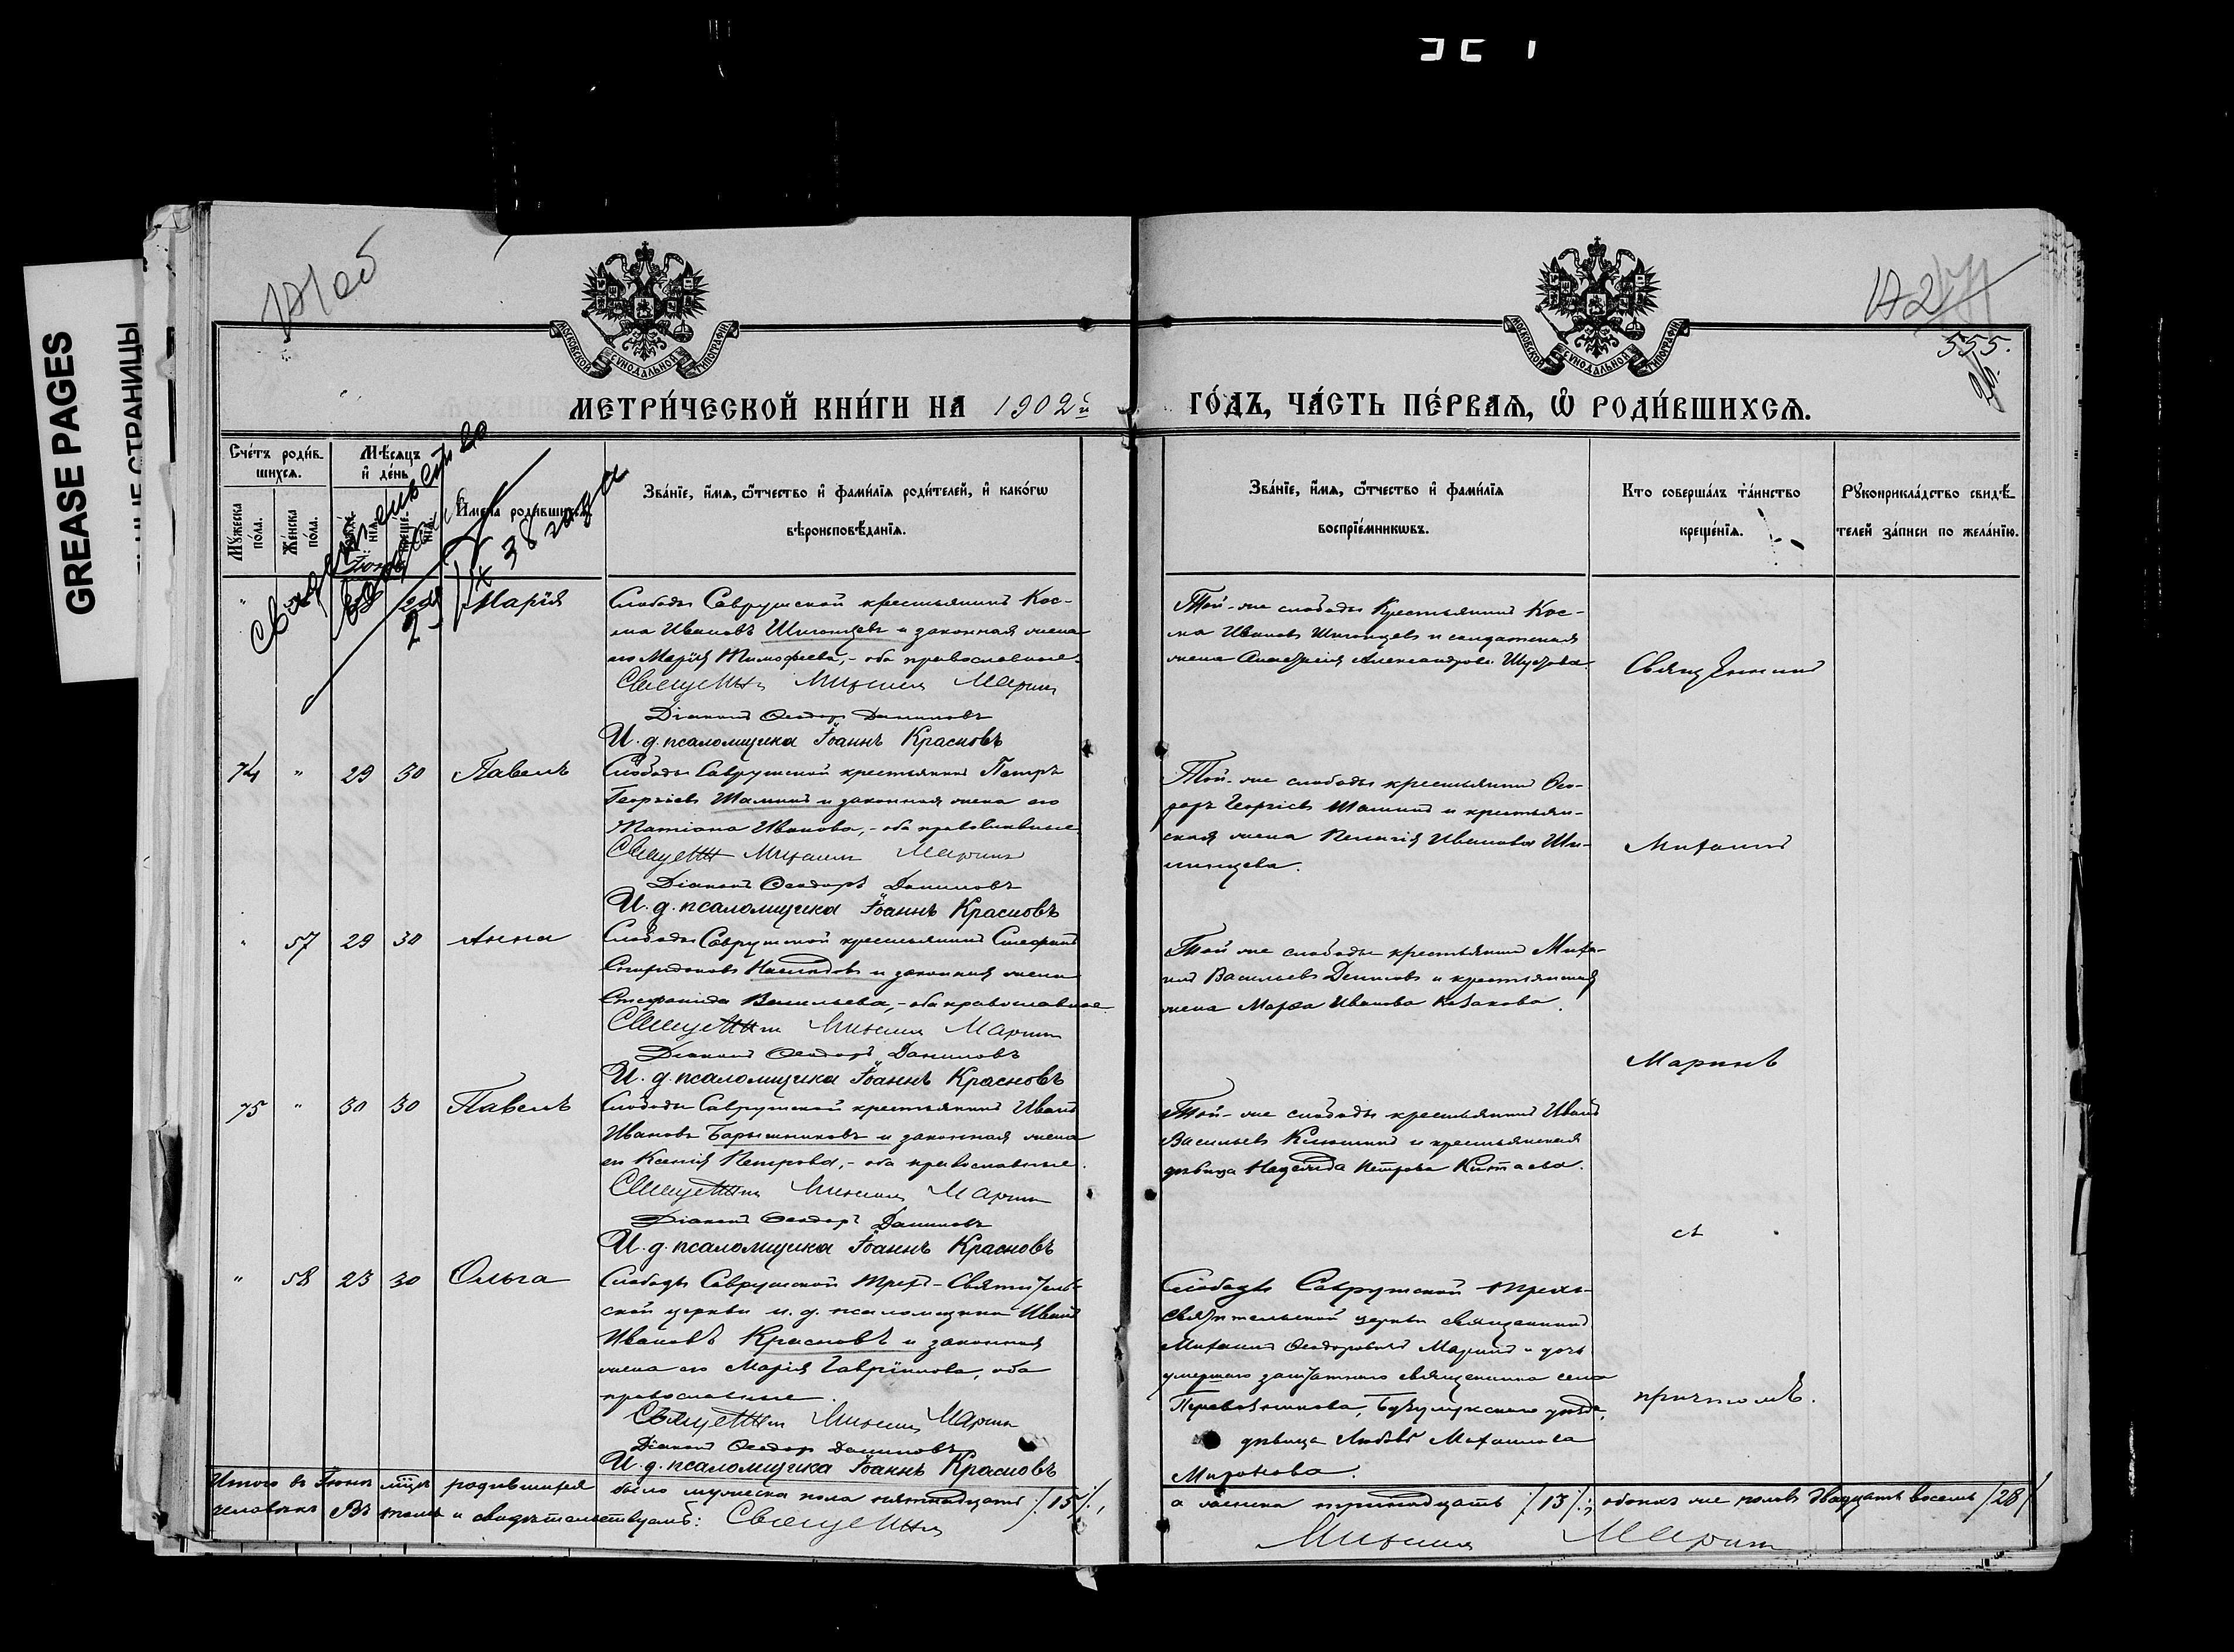 GREASE PAGES
СТРАНИЦЫ
555.
МОСКОВСКОЙ СѴНОДАЛЬНОЙ ТИПОГРАФІИ
МОСКОВСКОЙ СѴНОДАЛЬНОЙ ТИПОГРАФІИ
МЕТРИ́ЧЕСКОЙ КНИ́ГИ НА 1902й ГО́ДЪ, ЧА́СТЬ ПЕ́РВАѦ, Ѽ РОДИ́ВШИХСѦ.
Сче́тъ роди́в-
шихсѧ.
Мѣ́сѧцъ
и҆ де́нь
Мꙋ́жеска по́ла.
Же́нска по́ла.
Имена родившихсѧ.
Зва́нїе, и҆́мѧ, ѻ҆́тчество и҆ фами́лїѧ роди́телей, и҆ како́гѡ
вѣроисповѣ́данїѧ.
Зва́нїе, и҆́мѧ, ѻ҆́тчество и҆ фами́лїѧ
воспрїе́мникѡвъ.
Кто соверша́лъ та́инство
креще́нїѧ.
Рꙋкоприкла́дство свидѣ́-
телей за́писи по жела́нїю.
Свидетельство
38 года
Марія
Слободы Саврушской крестьянинъ Кос-
ма Ивановъ и законная жена
его Марія Тимофеева, - оба православные.
Священникъ Михаилъ Маринъ
Діаконъ Ѳеодоръ Даниловъ
И. д. псаломщика Іоаннъ Красновъ
Той-же слободы Крестьянинъ Кос-
ма Ивановъ и солдатская
жена Александрова
Священникъ
74 " 29 30 Павелъ
Слободы Саврушской крестьянинъ Петръ
Георгіевъ Шалинъ и законная жена его
Татіана Иванова, - оба православные.
Священникъ Михаилъ Маринъ
Діаконъ Ѳеодоръ Даниловъ
И. д. псаломщика Іоаннъ Красновъ
Той-же слободы крестьянинъ Ѳео-
доръ Георгіевъ Шалинъ и крестьян-
ская жена Пелагія Иванова
Михаилъ
" 57 29 30 Анна
Слободы Саврушской крестьянинъ Стефанъ
Спиридоновъ и законная жена
Стефанида Васильева, - оба православные.
Священникъ Михаилъ Маринъ
Діаконъ Ѳеодоръ Даниловъ
И. д. псаломщика Іоаннъ Красновъ
Той же слободы крестьянинъ Миха-
илъ Васильевъ Денисовъ и крестьянская
жена Марѳа Иванова Казакова.
Маринъ
75 " 30 30 Павелъ
Слободы Саврушской крестьянинъ Иванъ
Ивановъ Барышниковъ и законная жена
его Ксенія Петрова, - оба православные.
Священникъ Михаилъ Маринъ
Діаконъ Ѳеодоръ Даниловъ
И. д. псаломщика Іоаннъ Красновъ
Той-же слободы крестьянинъ Иванъ
Васильевъ и крестьянская
дѣвица Надежда Петрова Китаева.
съ
" 58 23 30 Ольга
Слободы Саврушской Трехъ-Святитель-
ской церкви и. д. псаломщика Иванъ
Ивановъ Красновъ и законная
жена его Марія Гавріилова, оба
православные.
Священникъ Михаилъ Маринъ
Діаконъ Ѳеодоръ Даниловъ
И. д. псаломщика Іоаннъ Красновъ
Слободы Саврушской Трехъ-
святительской церкви священникъ
Михаилъ Ѳеодоровичъ Маринъ и дочь
умершаго заштатнаго священника села
Перевозникова, Бузулукскаго уѣзда,
дѣвица Любовь Михаилова
Миронова.
причтомъ.
Итого въ Іюнѣ мцѣ родившихся было мужеска пола пятнадцать /:15:/, а женска тринадцать /:13:/; обоихъ же половъ двадцать восемь /28/
человѣкъ. Въ томъ и свидѣтельствуемъ: Священникъ Михаилъ Маринъ